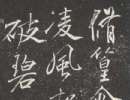 脩篁
凌風
破碧